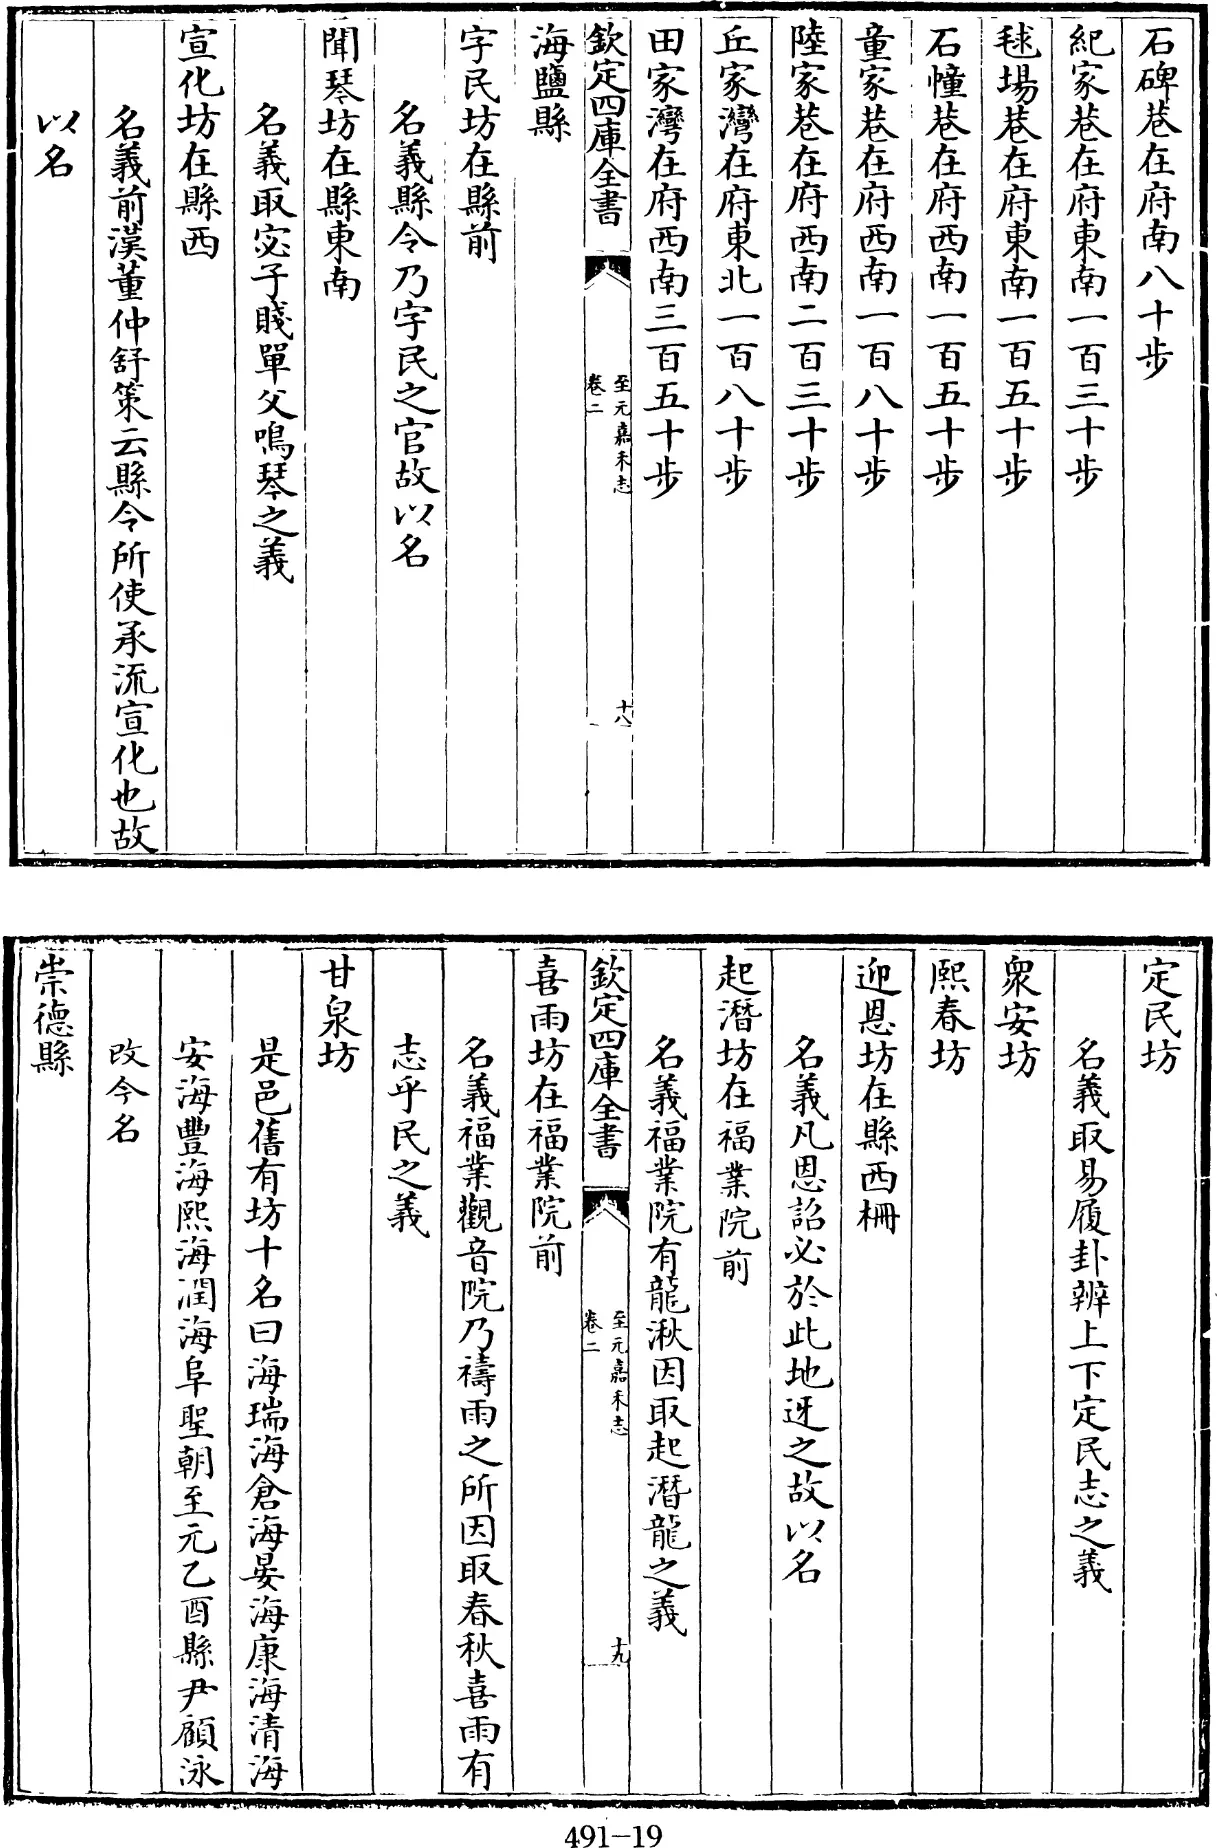 石碑巷在府南八十步
紀家巷在府東南一百三十步
毬場巷在府東南一百五十步
石幢巷在府西南一百五十步
童家巷在府西南一百八十步
陸家巷在府西南二百三十步
丘家灣在府東北一百八十步
田家灣在府西南三百五十步
欽定四庫全書
至元嘉禾志
卷二
十八
海鹽縣
字民坊在縣前
名義縣令乃字民之官故以名
聞琴坊在縣東南
名義取宓子賤單父鳴琴之義
宣化坊在縣西
名義前漢董仲舒策云縣令所使承流宣化也故
以名
定民坊
名義取易履卦辨上下定民志之義
衆安坊
熙春坊
迎恩坊在縣西柵
名義凡恩詔必於此地迓之故以名
起潛坊在福業院前
名義福業院有龍湫因取起潛龍之義
欽定四庫全書
至元嘉禾志
卷二
十九
喜雨坊在福業院前
名義福業觀音院乃禱雨之所因取春秋喜雨有
志乎民之義
甘泉坊
是邑舊有坊十名曰海瑞海倉海晏海康海清海
安海豐海熙海潤海阜聖朝至元乙酉縣尹顧泳
改今名
崇德縣
491-19